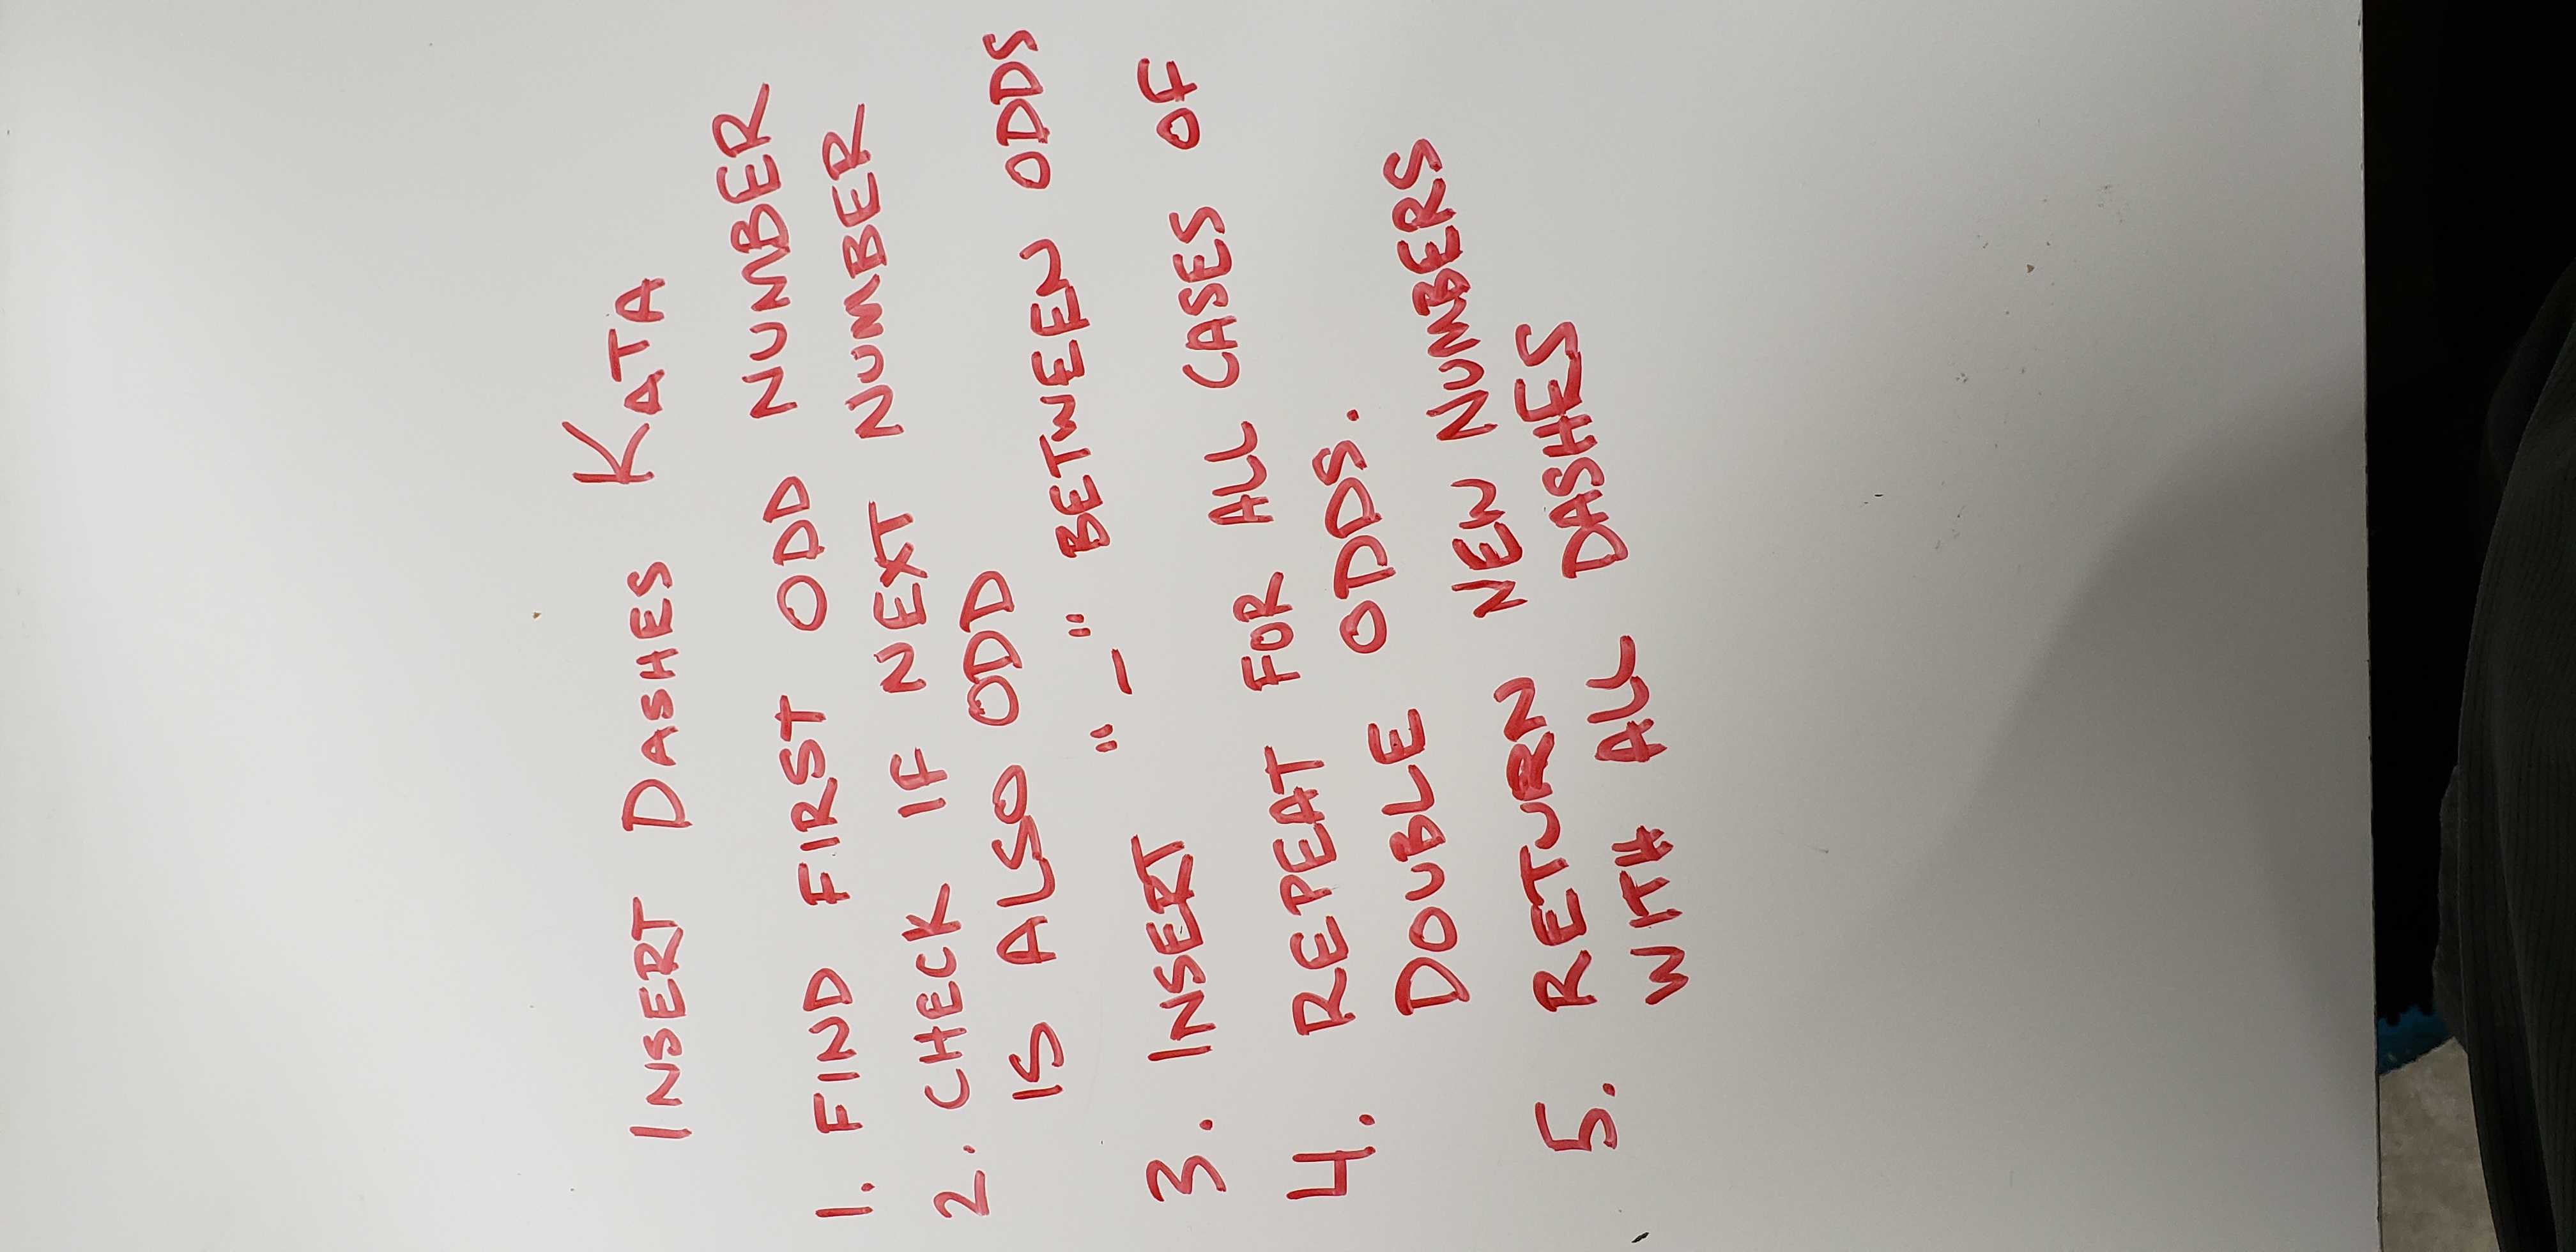 INSERT DASHES KATA
1. FIND FIRST ODD NUMBER
2. CHECK IF NEXT NUMBER
IS ALSO ODD
3. INSERT "-" BETWEEN ODDS
4. REPEAT FOR ALL CASES OF
DOUBLE ODDS.
5. RETURN NEW NUMBERS
WITH ALL DASHES